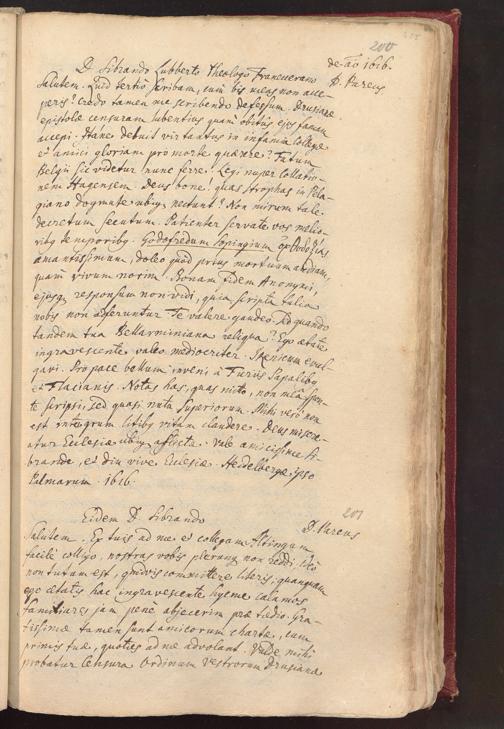 200
de aō 1616.
D. Pareus
D. Sibrando Lubberto Theologo Franecerano
Salutem. Quid tertiò scribam, cum bis meas non acce-
peris? Credo tamen me scribendo defessum. Drusianae
epistolae censuram lubentius quam obitus ejus famam
accepi. Hanc detuis virtantus in infamia Collegae
et amici gloriam pro morte quaerere? Fatum
Belgii sic videtur nunc ferre! Legi nuper Collatio-
nem Hagensem. Deus bone! quas strophas in Pela-
giano dogmate ubiq nectunt? Non mirum tale
decretum secutum. Patienter servate vos melio-
ribq temporibq. Godofredum Sopingium
amantissimum, doleo quod prius mortuum audiam,
quam vivum norim. Bonam fidem Anonymi,
ejusq responsum non vidi, quia scripta talia
nobis non afferuntur. Te valere gaudeo. Sed quando
tandem tua Bellarminiana reliqua? Ego aetate
ingravescente valeo mediocriter. Irenicum evul-
gavi. Pro pace bellum inveni à Furiis Papalibus
et Flacianis. Notas has, quas mitto, non meâ spon-
te scripsi, sed quasi nutu Superiorum. Mihi verò non
est integrum litibus vitam claudere. Deus miserea-
tur Ecclesiae ubiq afflictae. Vale amicissime Si-
brande, et diu vive Ecclesiae. Heidelbergae ipso
Palmarum. 1616.
201
D. Pareus
Eidem D. Sibrando
Salutem. Ex tuis ad me et collegam Altingum
facilè colligo, nostras vobis plerunq non reddi. Ideò
non tutum est, quidvis committere literis, quanquam
ego aetatis hac ingravescente hyeme calamos
familiares jam penè abjecerim prae taedio. Gra-
tissimae tamen sunt amicorum chartae, cum
primis tuae, quoties ad me advolant. Valdè mihi
probatur Censura Ordinum Vestrorum Drusiana